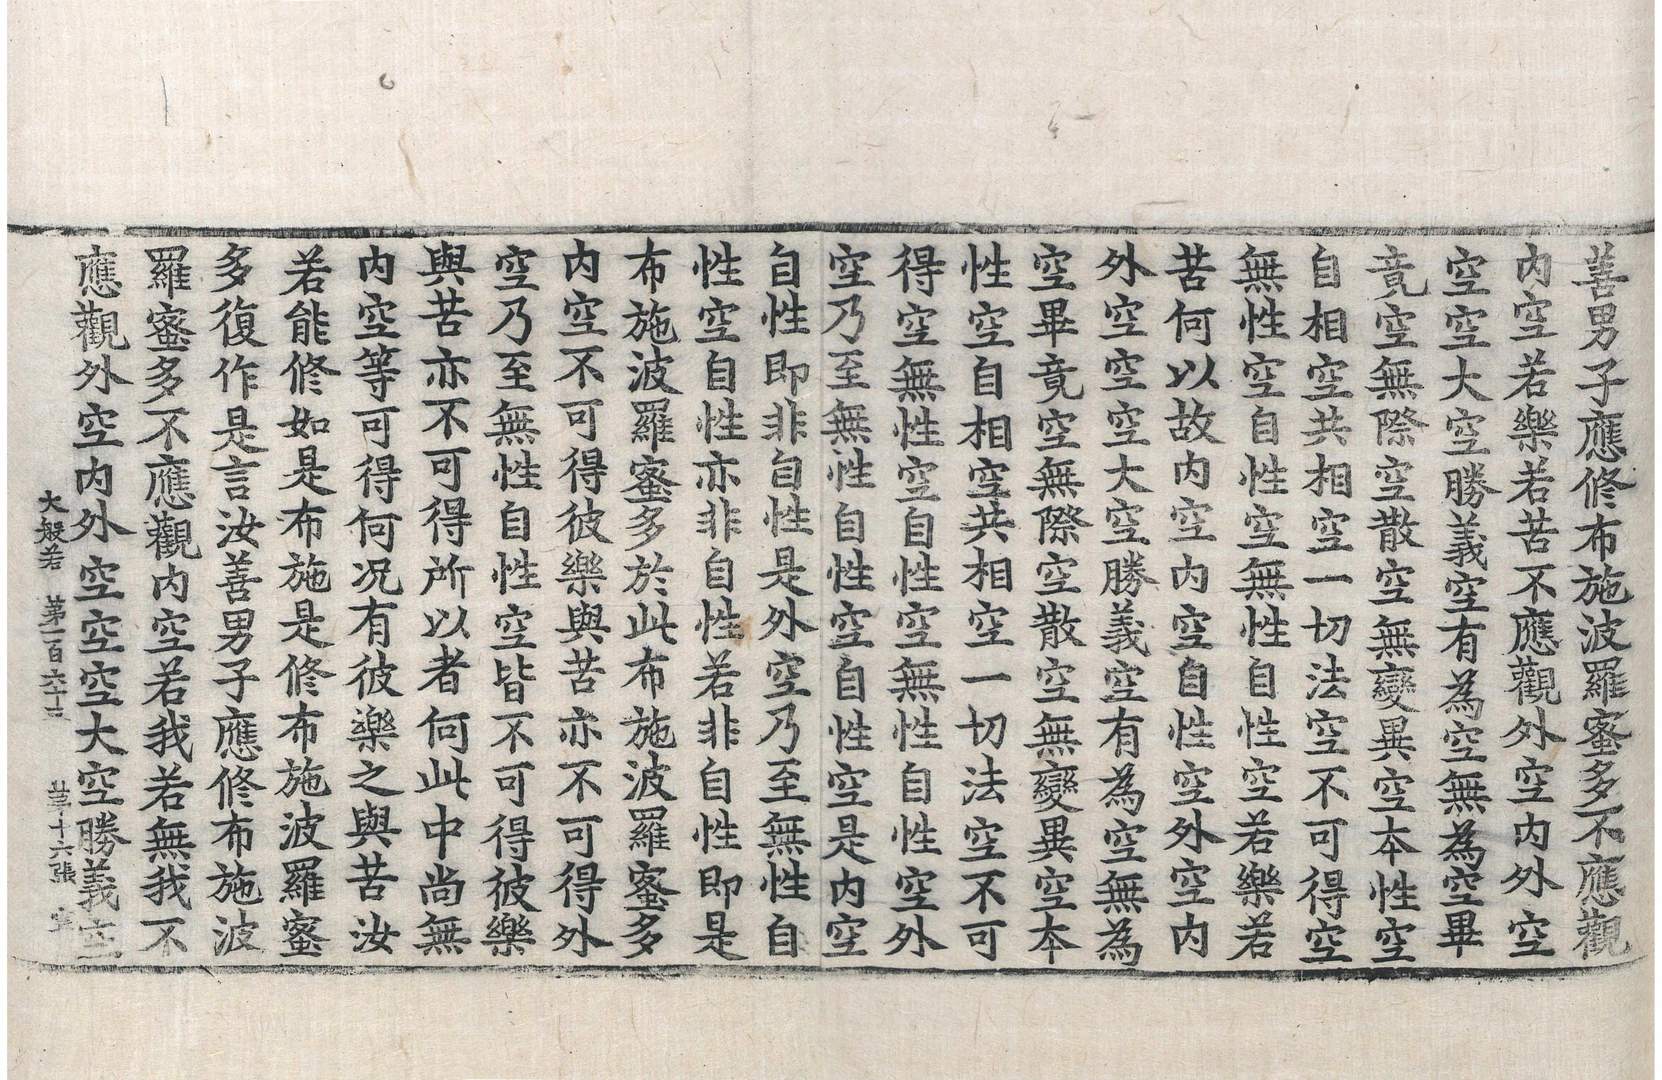 善男子應修布施波羅蜜多不應觀
內空若樂若苦不應觀外空內外空
空空大空勝義空有為空無為空畢
竟空無際空散空無變異空本性空
自相空共相空一切法空不可得空
無性空自性空無性自性空若樂若
苦何以故內空內空自性空外空內
外空空空大空勝義空有為空無為
空畢竟空無際空散空無變異空本
性空自相空共相空一切法空不可
得空無性空自性空無性自性空外
空乃至無性自性空自性空是內空
自性即非自性是外空乃至無性自
性空自性亦非自性若非自性即是
布施波羅蜜多於此布施波羅蜜多
內空不可得彼樂與苦亦不可得外
空乃至無性自性空皆不可得彼樂
與苦亦不可得所以者何此中尚無
內空等可得何況有彼樂之與苦汝
若能修如是布施是修布施波羅蜜
多復作是言汝善男子應修布施波
羅蜜多不應觀內空若我若無我不
應觀外空內外空空空大空勝義空
大般若 第一百六十三 第十六張